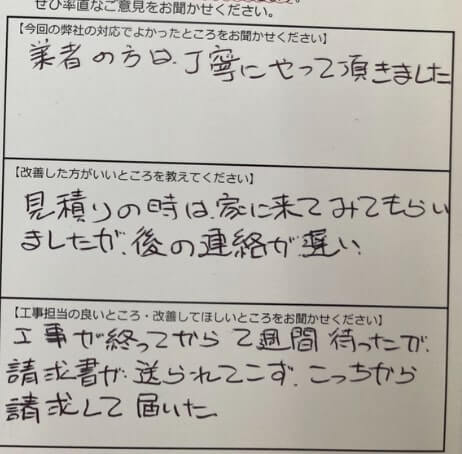 ぜひ率直なご意見をお聞かせください。
【今回の弊社の対応でよかったところをお聞かせください】
業者の方は、丁寧にやって頂きました
【改善した方がいいところを教えてください】
見積りの時は、家に来てみてもらい
ましたが、後の連絡が遅い、
【工事担当の良いところ・改善してほしいところをお聞かせください】
工事が終ってから2週間待ったが、
請求書が送られてこず、こっちから
請求して届いた